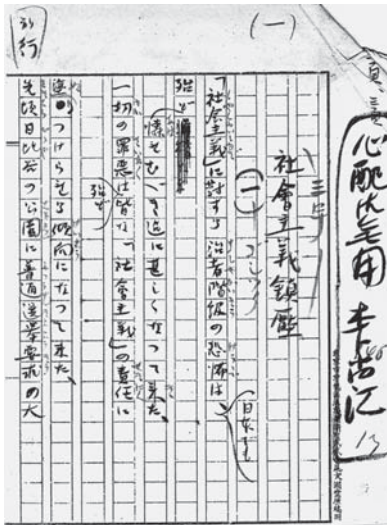 (一)
心配無用
三号
社會主義鎮壓
(一)
「社會主義」に對する治者階級の恐怖は
日本でも
殆ど
憐むべき迄に甚しくなつて來た、
一切の罪惡は皆な「社會主義」の責任に
殆ど
塗りつけらるる傾向になつて來た、
別行
先頃日比谷の公園に普通選擧要求の大